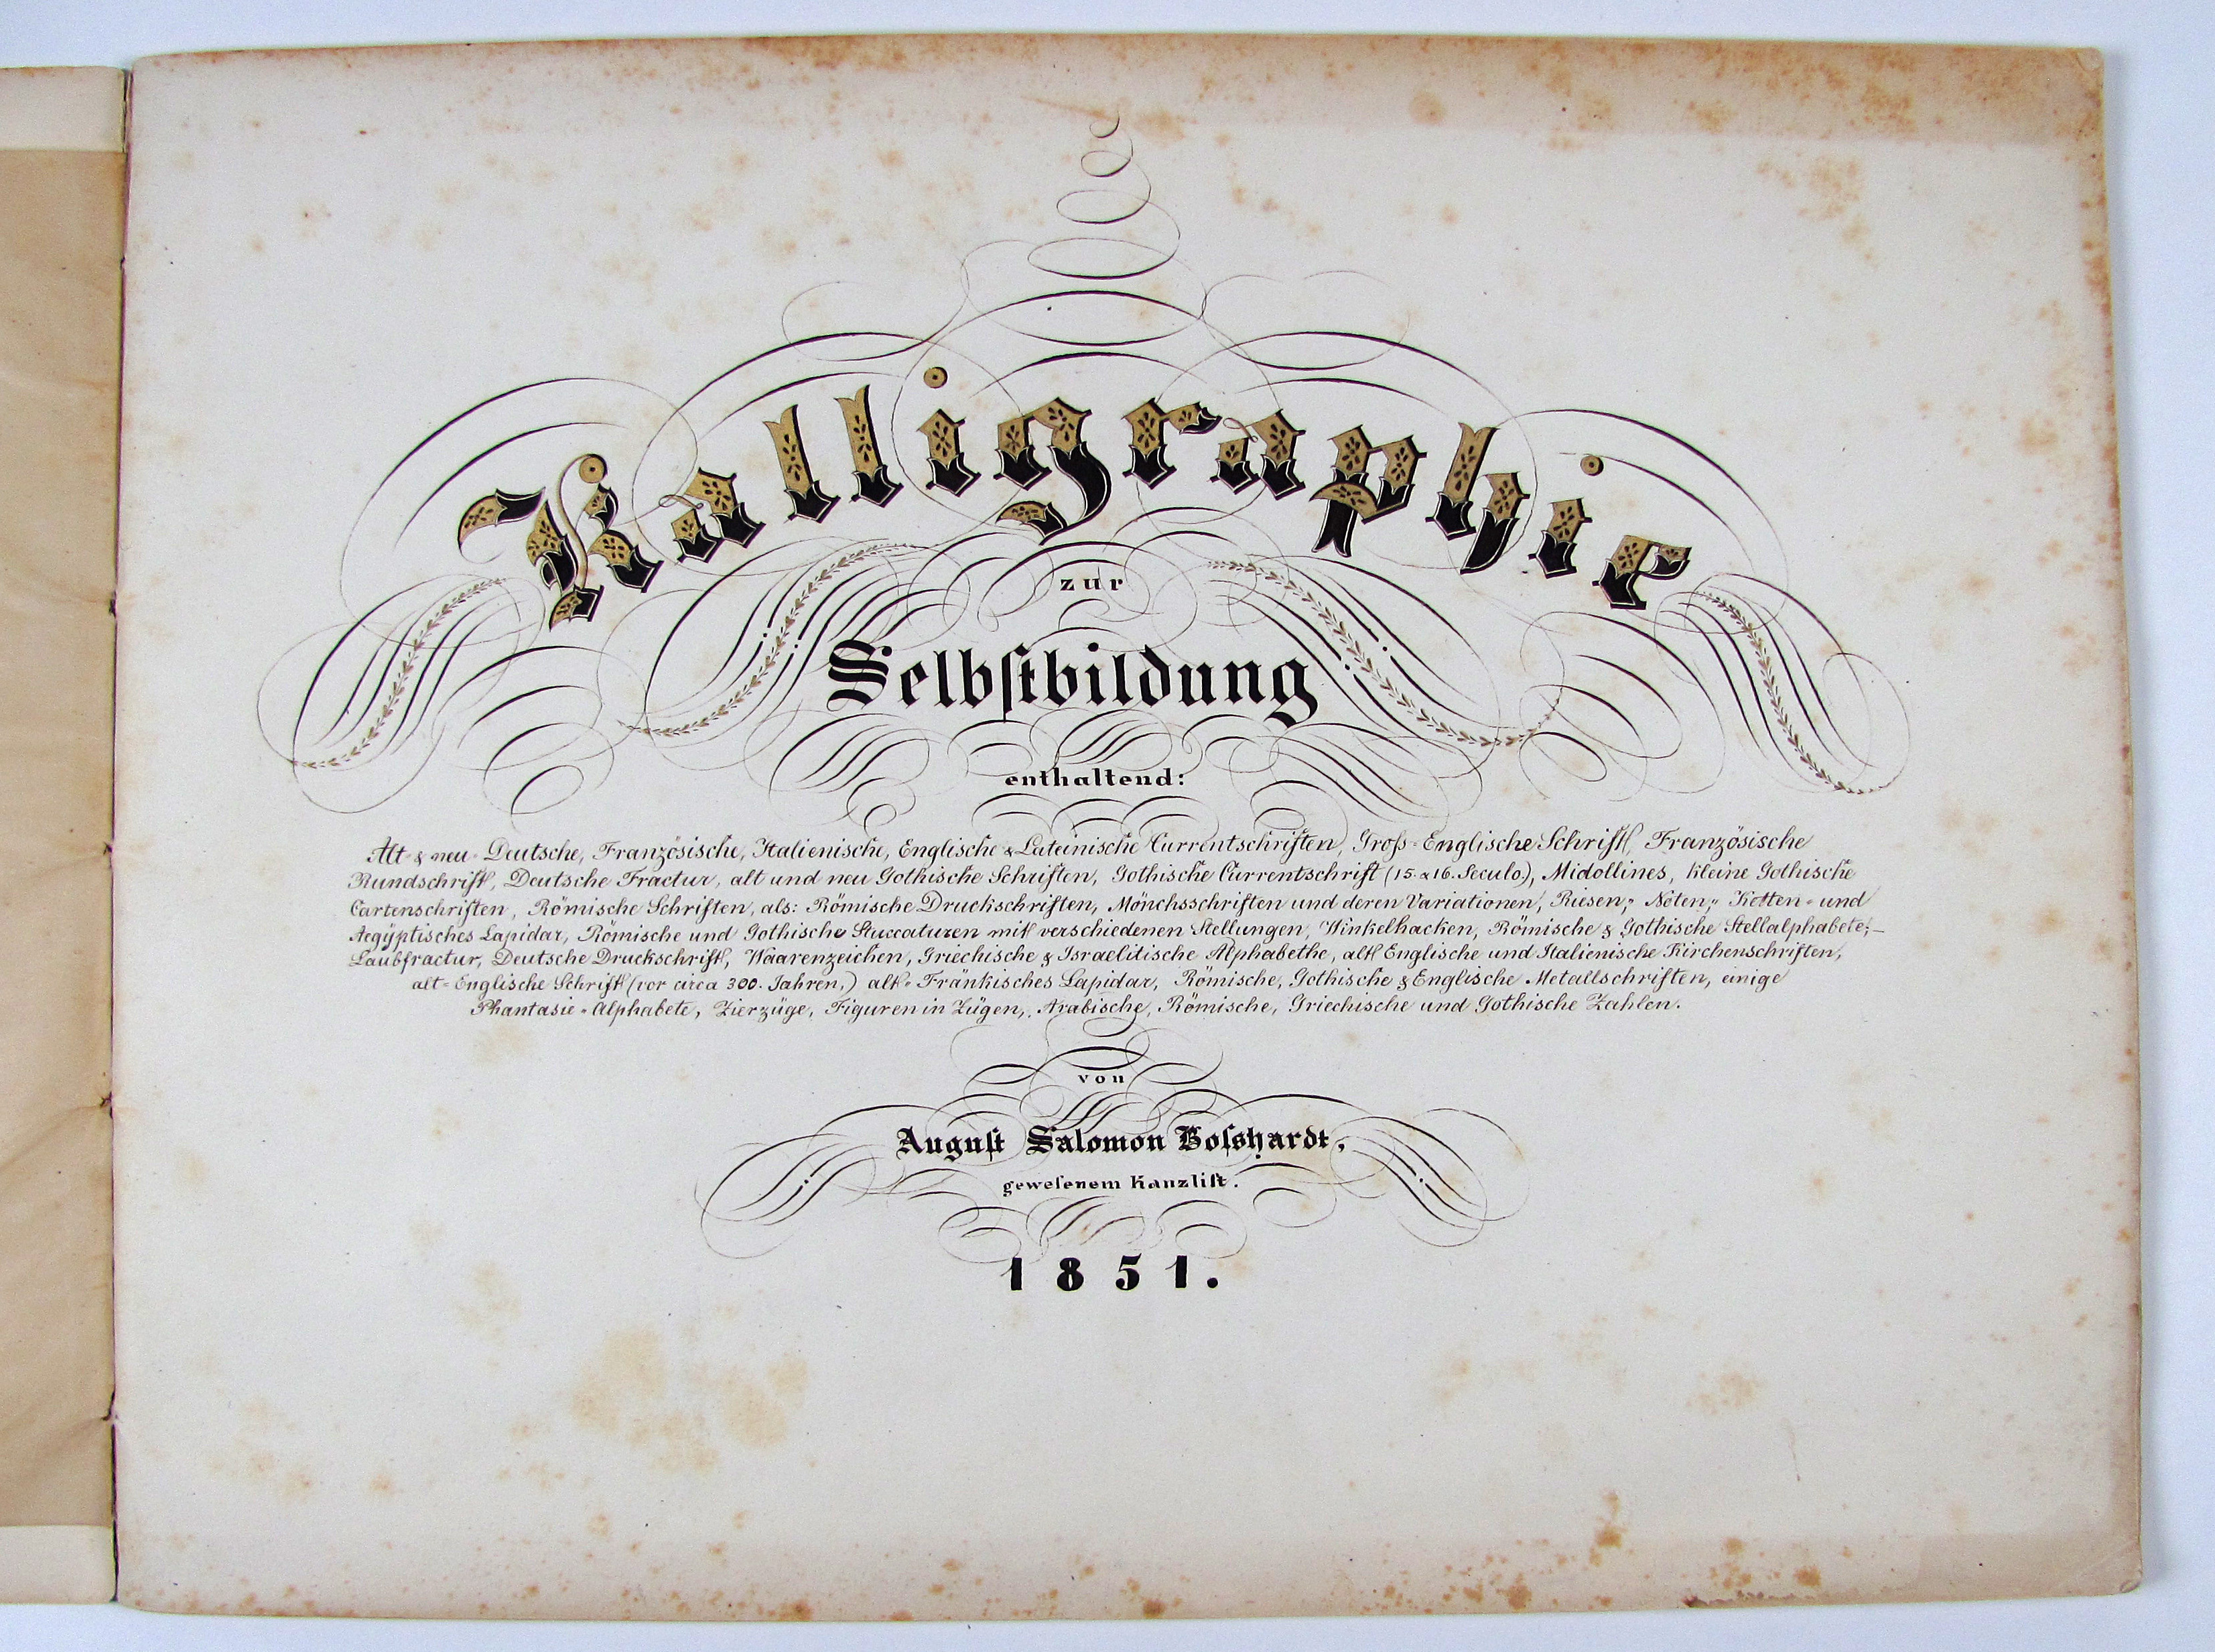 Kalligraphie
zur
Selbſtbildung
enthaltend:
Alt- & neu- Deutsche, Französische, Italienische, Englische & Lateinische Currentschriften, Groſs-Englische Schrift, Französische
Rundschrift, Deutsche Fractur, alt und neu Gothische Schriften, Gothische Currentschrift (15. & 16. Seculo.), Midollines, kleine Gothische
Cartenschriften, Römische Schriften, als: Römische Druckschriften, Mönchsschriften und deren Variationen, Riesen-, Noten-, Ketten- und
Aegÿptisches Lapidar, Römische und Gothische Stuccaturen mit verschiedenen Stellungen, Winkelhacken, Römische & Gothische Stellalphabete;–
Laubfractur, Deutsche Druckschrift, Waarenzeichen, Griechische & Israelitische Alphabethe, alt Englische und Italienische Kirchenschriften,
alt-Englische Schrift (vor circa 300. Jahren,) alt-Fränkisches Lapidar, Römische, Gothische & Englische Metallschriften, einige
Phantasie-Alphabete, Zierzüge, Figuren in Zügen, Arabische, Römische, Griechische und Gothische Zahlen.
von
Auguſt Salomon Boſshardt,
geweſenem Kanzliſt.
1851.